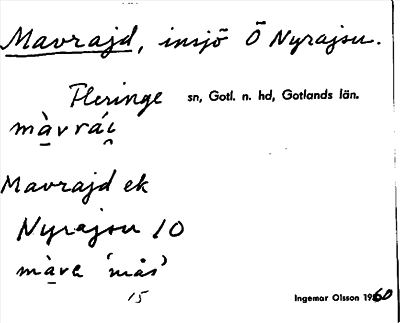 Mavrajd, insjö Ö Nyrajsu.
Fleringe sn, Gotl. n. hd, Gotlands län.
màvrái̯
Mavrajd ek
Nyrajsu 10
màve 'mås'
15
Ingemar Olsson 1960